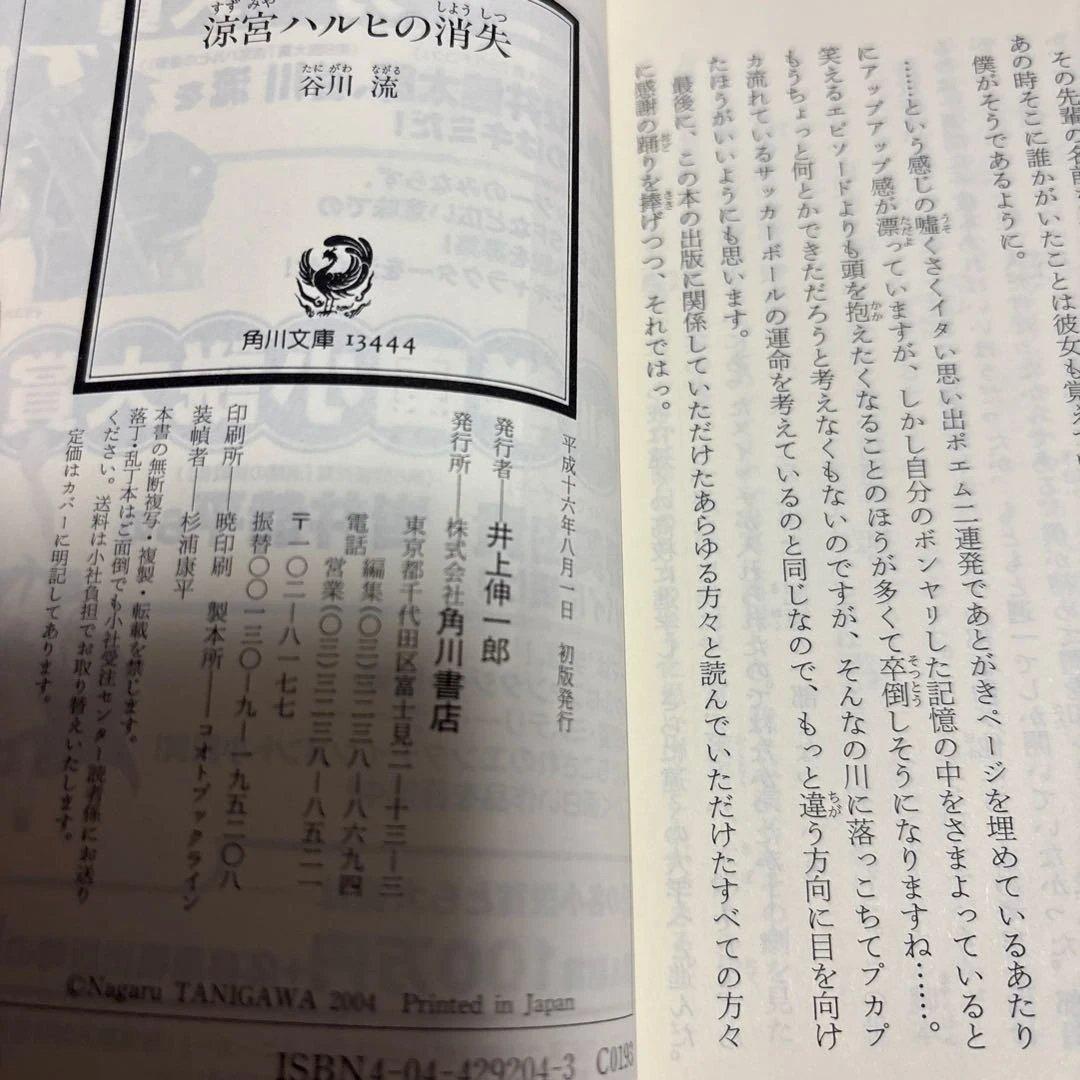 その先輩の名前
あの時そこに誰かがいたことは彼女も覚えて
僕がそうであるように。
……という感じの嘘くさくイタい思い出ポエム二連発であとがきページを埋めているあたり
にアップアップ感が漂っていますが、しかし自分のボンヤリした記憶の中をさまよっていると
笑えるエピソードよりも頭を抱えたくなることのほうが多くて卒倒しそうになりますね……。
もうちょっと何とかできただろうと考えなくもないのですが、そんなの川に落っこちてプカプ
カ流れているサッカーボールの運命を考えているのと同じなので、もっと違う方向に目を向け
たほうがいいようにも思います。
最後に、この本の出版に関係していただけたあらゆる方々と読んでいただけたすべての方々
に感謝の踊りを捧げつつ、それではっ。
涼宮ハルヒの消失
谷川 流
角川文庫 13444
平成十六年八月一日 初版発行
発行者――井上伸一郎
発行所――株式会社角川書店
東京都千代田区富士見二―十三―三
電話 編集(〇三)三二三八―八六九四
営業(〇三)三二三八―八五二一
〒一〇二―八一七七
振替〇〇一三〇―九―一九五二〇八
印刷所――暁印刷 製本所――コオトブックライン
装幀者――杉浦康平
本書の無断複写・複製・転載を禁じます。
落丁・乱丁本はご面倒でも小社受注センター読者係にお送り
ください。送料は小社負担でお取り替えいたします。
定価はカバーに明記してあります。
©Nagaru TANIGAWA 2004 Printed in Japan
ISBN4-04-429204-3 C0193